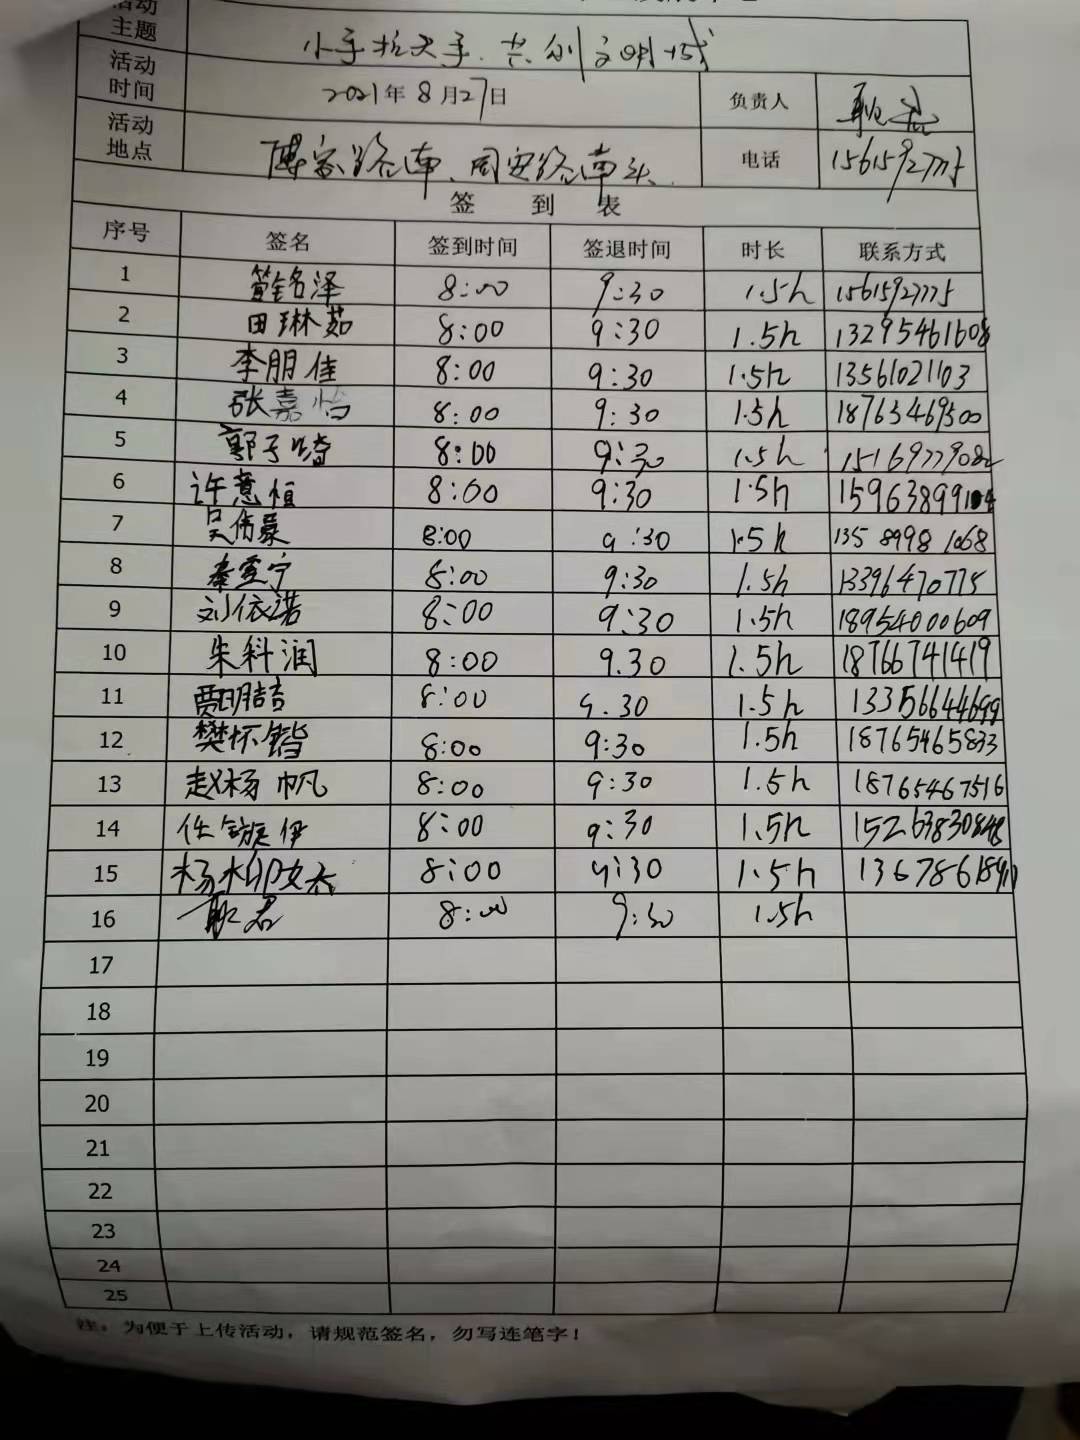 活动主题 小手拉大手、共创文明城
活动时间 2021年8月27日 负责人
活动地点 傅家路南、固安路南头 电话
签 到 表
序号 签名 签到时间 签退时间 时长 联系方式
1 铭泽 8:00 9:30 1.5h 15615927775
2 田琳茹 8:00 9:30 1.5h 13295461608
3 李朋佳 8:00 9:30 1.5h 13561021103
4 张嘉怡 8:00 9:30 1.5h 18763469500
5 郭子琦 8:00 9:30 1.5h
6 许意恒 8:00 9:30 1.5h 15963899104
7 吴伟豪 8:00 9:30 1.5h 13589981068
8 秦雪宁 8:00 9:30 1.5h 13396470775
9 刘依诺 8:00 9:30 1.5h 18954000609
10 朱科润 8:00 9.30 1.5h 18766741419
11 贾明喆 8:00 9.30 1.5h 13356644699
12 樊怀锴 8:00 9:30 1.5h 18765465833
13 赵杨帆 8:00 9:30 1.5h 18765467516
14 任 伊 8:00 9:30 1.5h 15263830848
15 杨 8:00 9:30 1.5h
16 8:00 9:30 1.5h
17
18
19
20
21
22
23
24
25
注：为便于上传活动，请规范签名，勿写连笔字！